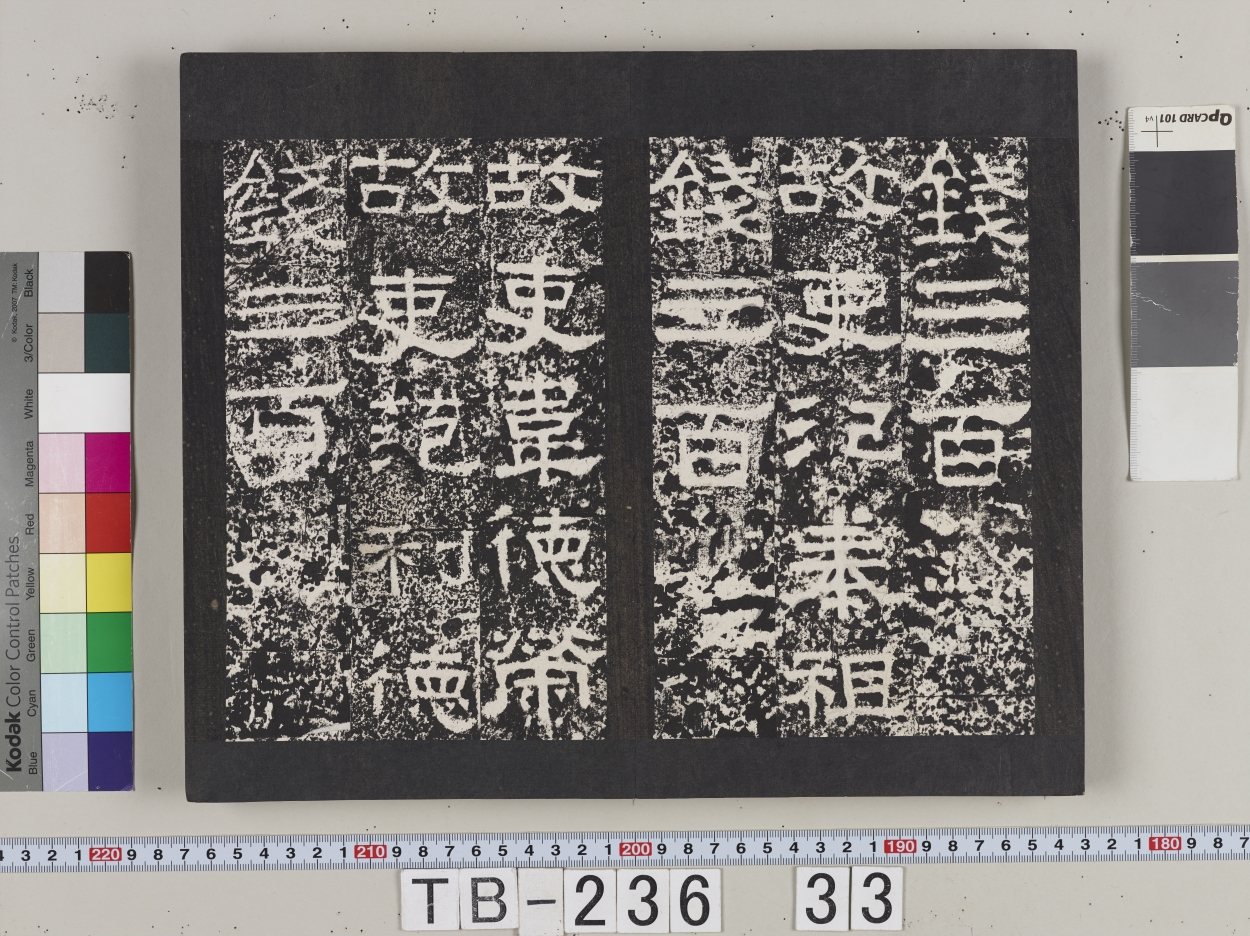 錢三百
故吏紀奉祖
錢三百
故吏韋德榮
故吏范利德
錢三百
QPCARD 101 v4
Kodak Color Control Patches
© Kodak, 2007 TM: Kodak
Blue Cyan Green Yellow Red Magenta White 3/Color Black
4 3 2 1 220 9 8 7 6 5 4 3 2 1 210 9 8 7 6 5 4 3 2 1 200 9 8 7 6 5 4 3 2 1 190 9 8 7 6 5 4 3 2 1 180 9 8 7
TB-236 33